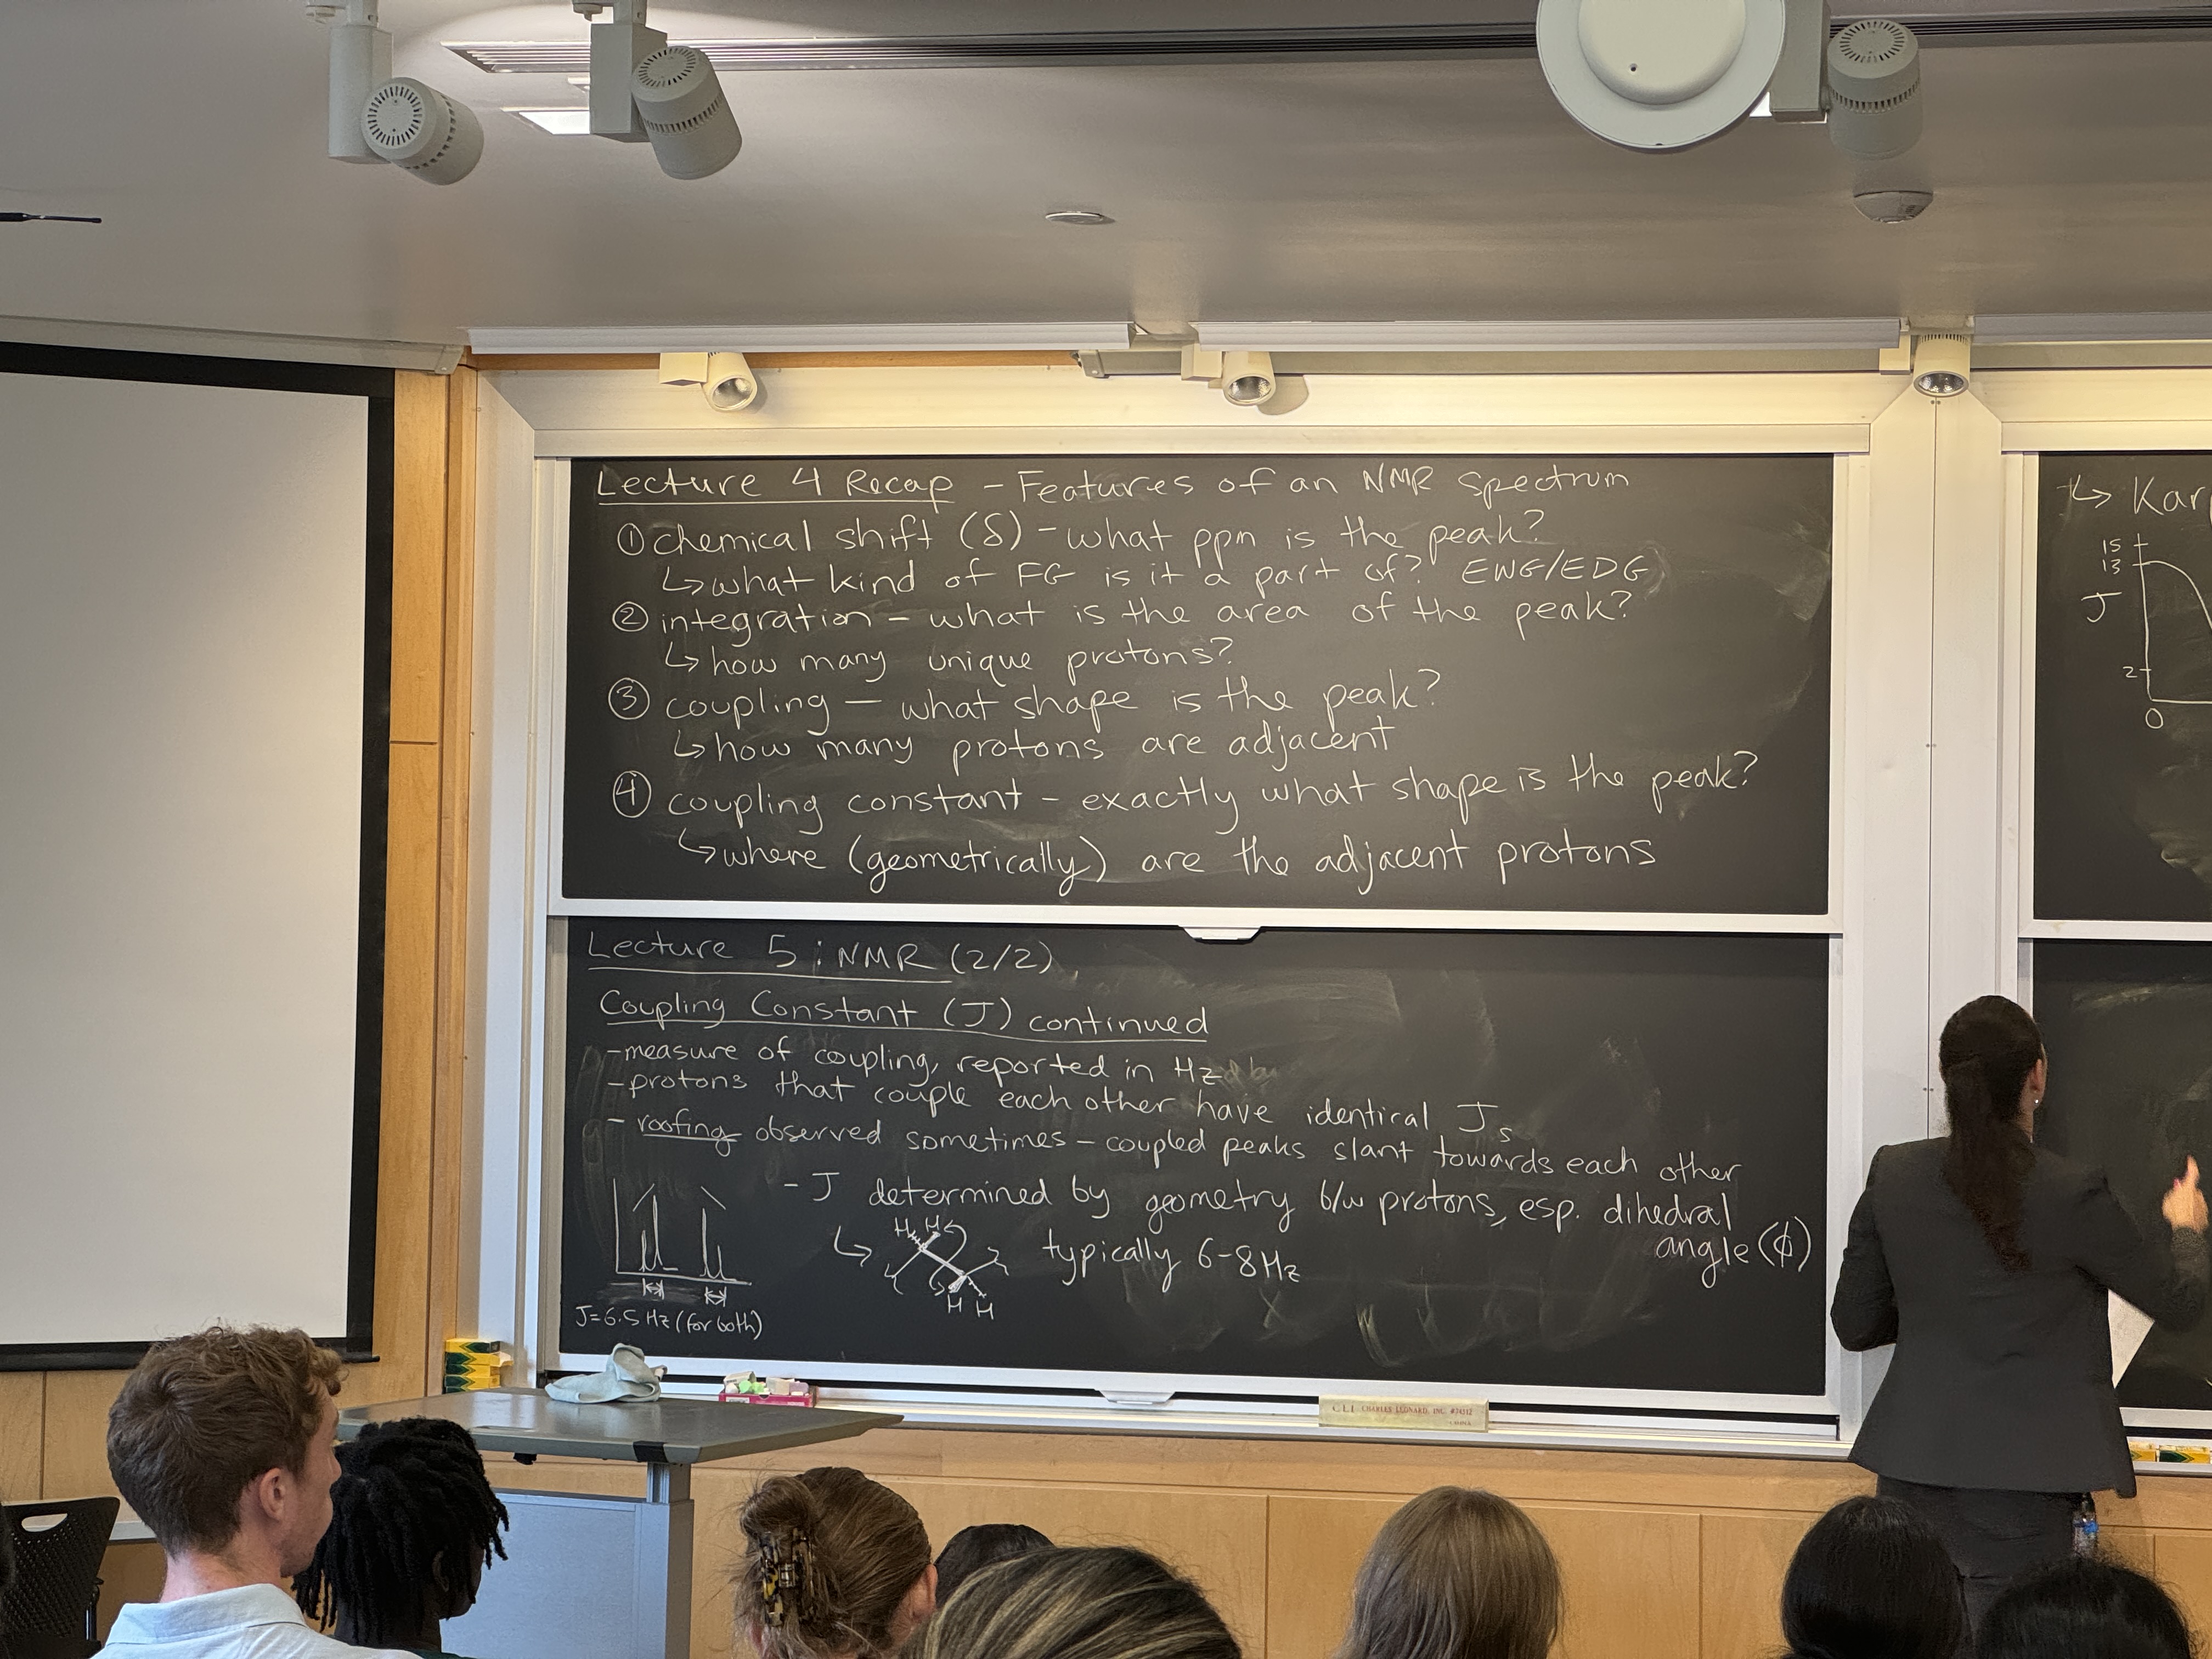 Lecture 4 Recap - Features of an NMR spectrum
① chemical shift (δ) - what ppm is the peak?
↳ what kind of FG is it a part of? EWG/EDG
② integration - what is the area of the peak?
↳ how many unique protons?
③ coupling - what shape is the peak?
↳ how many protons are adjacent
④ coupling constant - exactly what shape is the peak?
↳ where (geometrically) are the adjacent protons
Lecture 5: NMR (2/2)
Coupling Constant (J) continued
- measure of coupling, reported in Hz
- protons that couple each other have identical Js
- roofing observed sometimes - coupled peaks slant towards each other
- J determined by geometry b/w protons, esp. dihedral
angle (ϕ)
↳ H H typically 6-8 Hz
H H
J=6.5 Hz (for both)
↳ Kar
15
13
J
2
0
CLI CHARLES LEONARD, INC. #74512